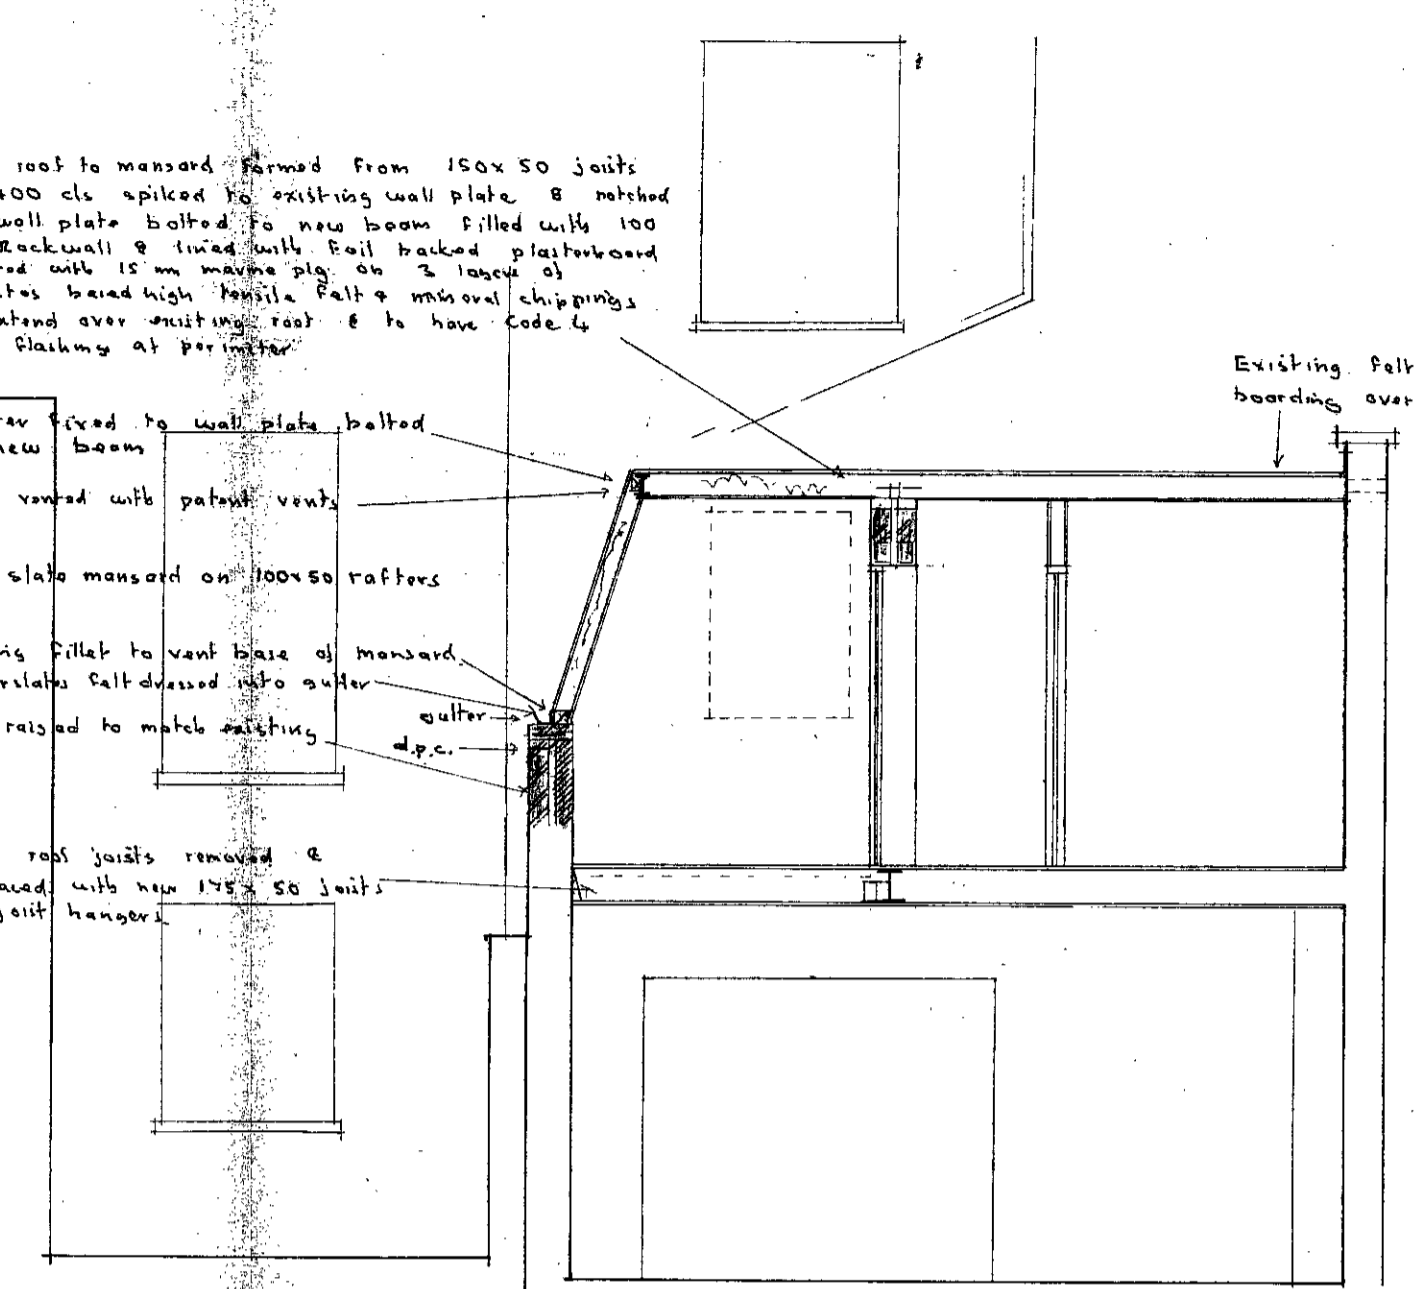 roof to mansard formed from 150x50 joists
400 cls spiked to existing wall plate & notched
wall plate bolted to new beam filled with 100
Rockwall & lined with foil backed plasterboard
with 15 mm marine ply on 3 layers of
based high tensile felt & mineral chippings
over existing roof & to have Code 4
flashing at perimeter
fixed to wall plate bolted
new beam
vented with patent vents
slate mansard on 100x50 rafters
fillet to vent base of mansard
felt dressed into gutter
raised to match existing
gutter
d.p.c.
roof joists removed &
with new 175x50 joists
joist hangers
Existing felt
boarding over